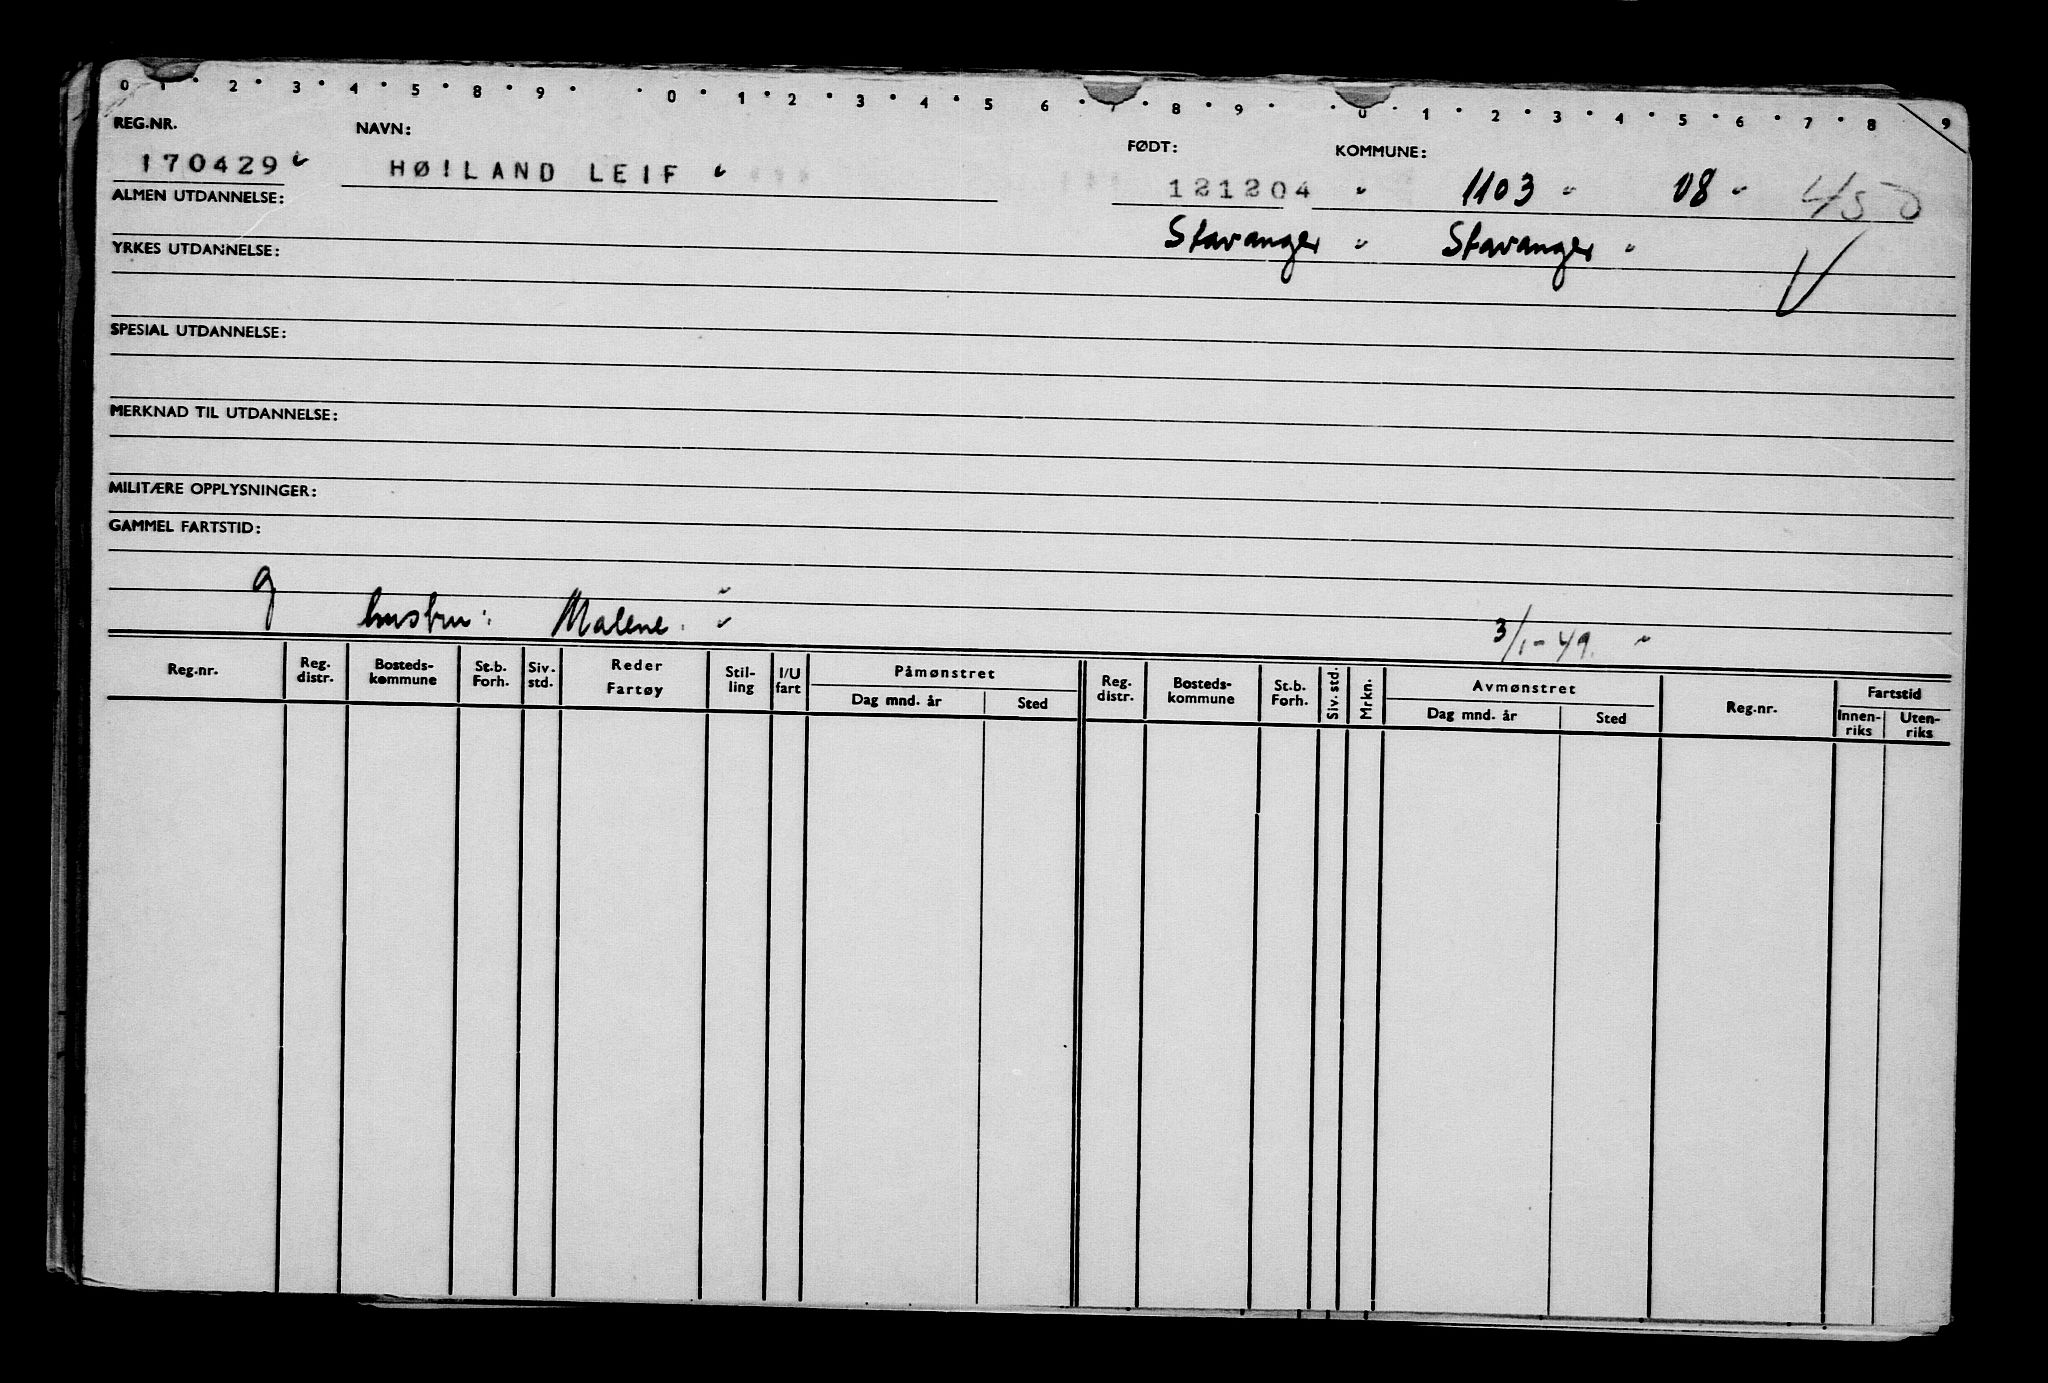 0 1 2 3 4 5 8 9 0 1 2 3 4 5 6 7 8 9 0 1 2 3 4 5 6 7 8 9
REG.NR. NAVN: FØDT: KOMMUNE:
170429 HØILAND LEIF 121204 1103 08 450
ALMEN UTDANNELSE:
Stavanger Stavanger
YRKES UTDANNELSE:
SPESIAL UTDANNELSE:
MERKNAD TIL UTDANNELSE:
MILITÆRE OPPLYSNINGER:
GAMMEL FARTSTID:
g hustru: Malene. 3/1-49.
Reg.nr. Reg. distr. Bosteds-kommune St.b. Forh. Siv. std. Reder Fartøy Stil-ling I/U fart Påmønstret Dag mnd. år Sted Reg. distr. Bosteds-kommune St.b. Forh. Siv. std. Mrkn. Avmønstret Dag mnd. år Sted Reg.nr. Fartstid Innen-riks Uten-riks